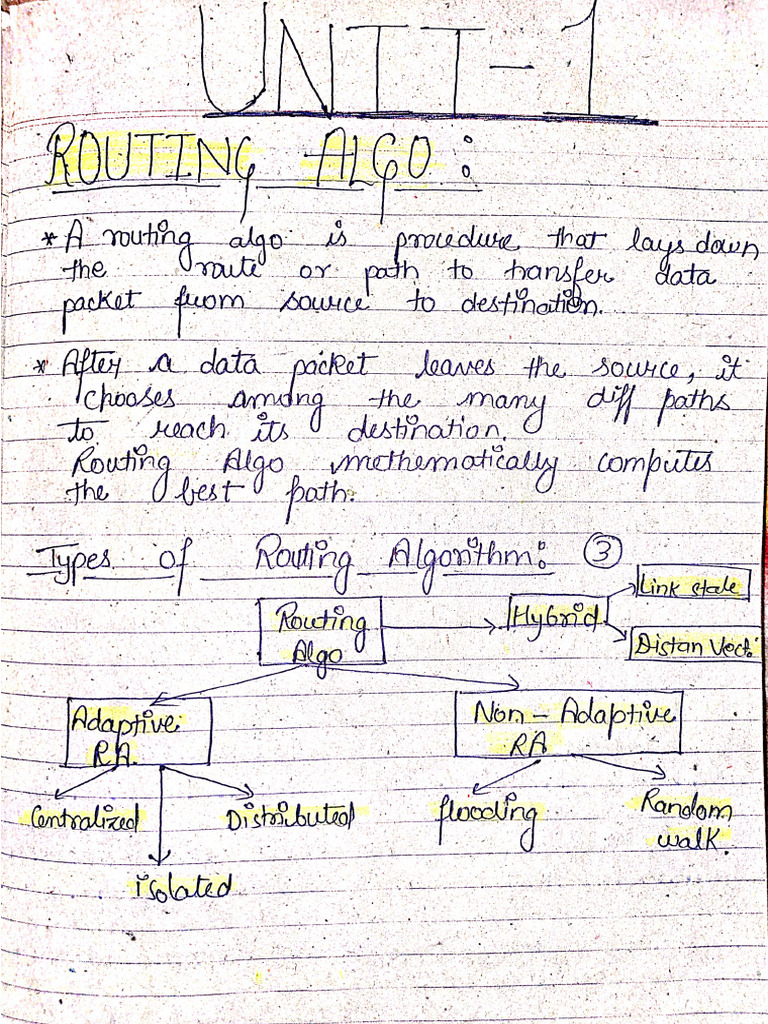 UNIT-1
ROUTING ALGO:
* A routing algo is procedure that lays down
the route or path to transfer data
packet from source to destination.
* After a data packet leaves the source, it
chooses among the many diff paths
to reach its destination.
Routing Algo methematically computes
the best path.
Types of Routing Algorithm: ③
Link state
Routing
Algo
Hybrid
Distan Vect.
Adaptive
RA.
Non-Adaptive
RA
Centralized
Distributed
flooding
Random
walk.
isolated